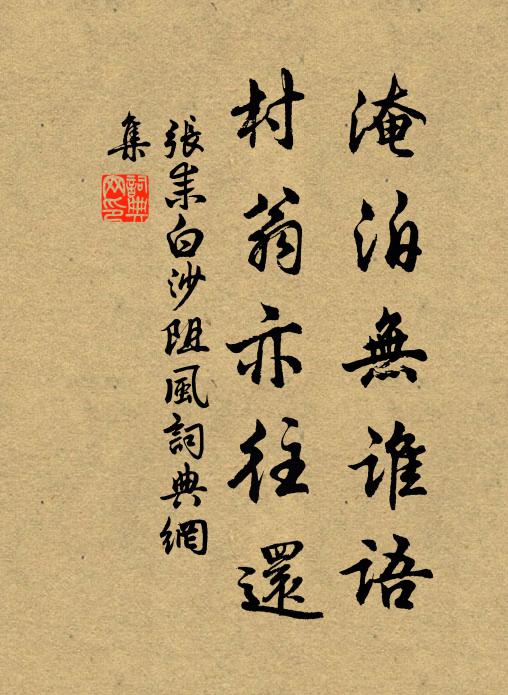 淹泊無誰語
村翁亦往還
張耒白沙阻風詞典網
集
詞典網印